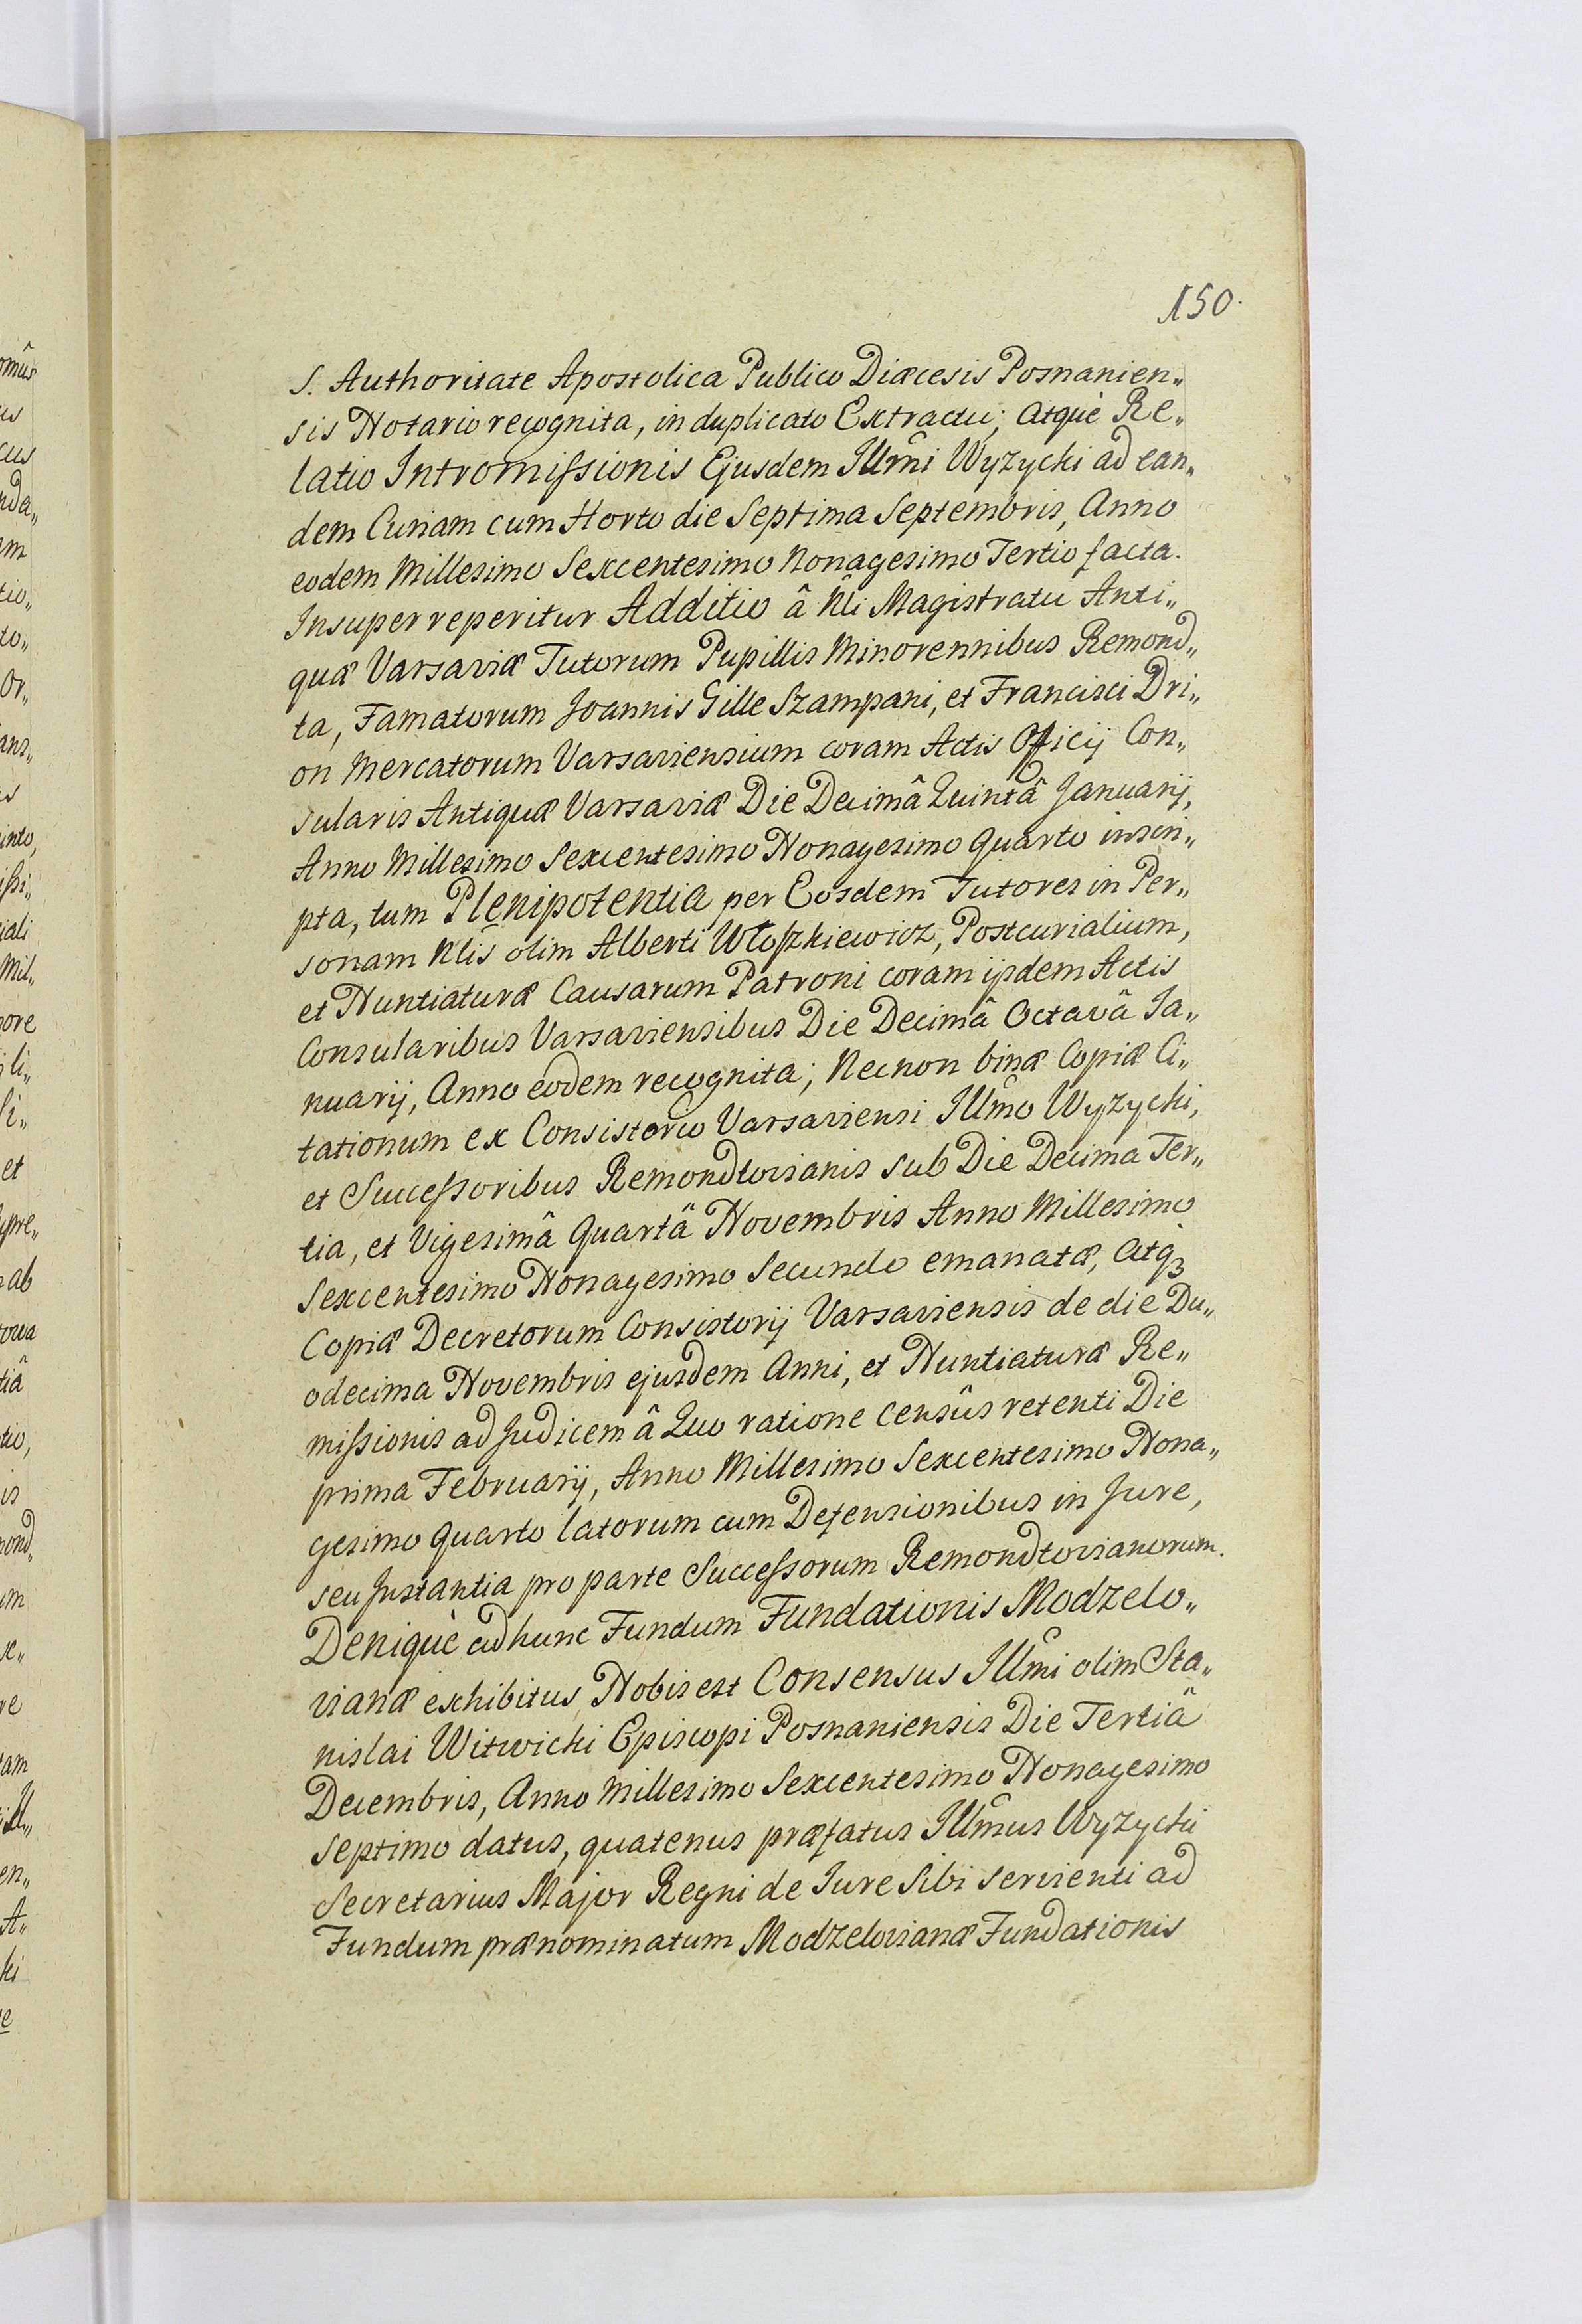 150.
S. Authoritate Apostolica Publico Diæcesis Posnanien„
sis Notario recognita, in duplicato Extractu; Atquè Re„
latio Intromißionis Ejusdem Illm̃i Wyzycki ad ean„
dem Curiam cum Horto die Septima Septembris, Anno
eodem Millesimo Sexcentesimo Nonagesimo Tertio facta.
Insuper reperitur Additio â Nli Magistratu Anti„
quæ Varsaviæ Tutorum Pupillis Minorennibus Remond„
ta, Famatorum Joannis Gille Szampani, et Francisci Dri„
on Mercatorum Varsaviensium coram Actis Officij Con„
sularis Antiquæ Varsaviæ Die Decimâ Quintâ Januarij,
Anno Millesimo Sexcentesimo Nonagesimo Quarto inscri„
pta, tum Plenipotentia per Eosdem Tutores in Per„
sonam Nlis olim Alberti Wloszkiewicz, Postcurialium,
et Nuntiaturæ Causarum Patroni coram ijsdem Actis
Consularibus Varsaviensibus Die Decimâ Octavâ Ja„
nuarij, Anno eodem recognita; Necnon binæ Copiæ Ci„
tationum ex Consistorio Varsaviensi Illm̃o Wyzycki,
et Succeßoribus Remondtovianis sub Die Decima Ter„
tia, et Vigesimâ Quartâ Novembris Anno Millesimo
Sexcentesimo Nonagesimo Secundo emanatæ, Atqꝫ
Copiæ Decretorum Consistorij Varsaviensis de die Du„
odecima Novembris ejusdem Anni, et Nuntiaturæ Re„
mißionis ad Judicem â Quo ratione Censûs retenti Die
prima Februarij, Anno Millesimo Sexcentesimo Nona„
gesimo Quarto latorum cum Defensionibus in Jure,
seu Instantia pro parte Succeßorum Remondtovianorum.
Deniquè ad hunc Fundum Fundationis Modzelo„
vianæ exhibitus Nobis est Consensus Illm̃i olim Sta„
nislai Witwicki Episcopi Posnaniensis Die Tertiâ
Decembris, Anno Millesimo Sexcentesimo Nonagesimo
Septimo datus, quatenus præfatus Illm̃us Wyzycki
Secretarius Major Regni de Jure Sibi servienti ad
Fundum prænominatum Modzelovianæ Fundationis